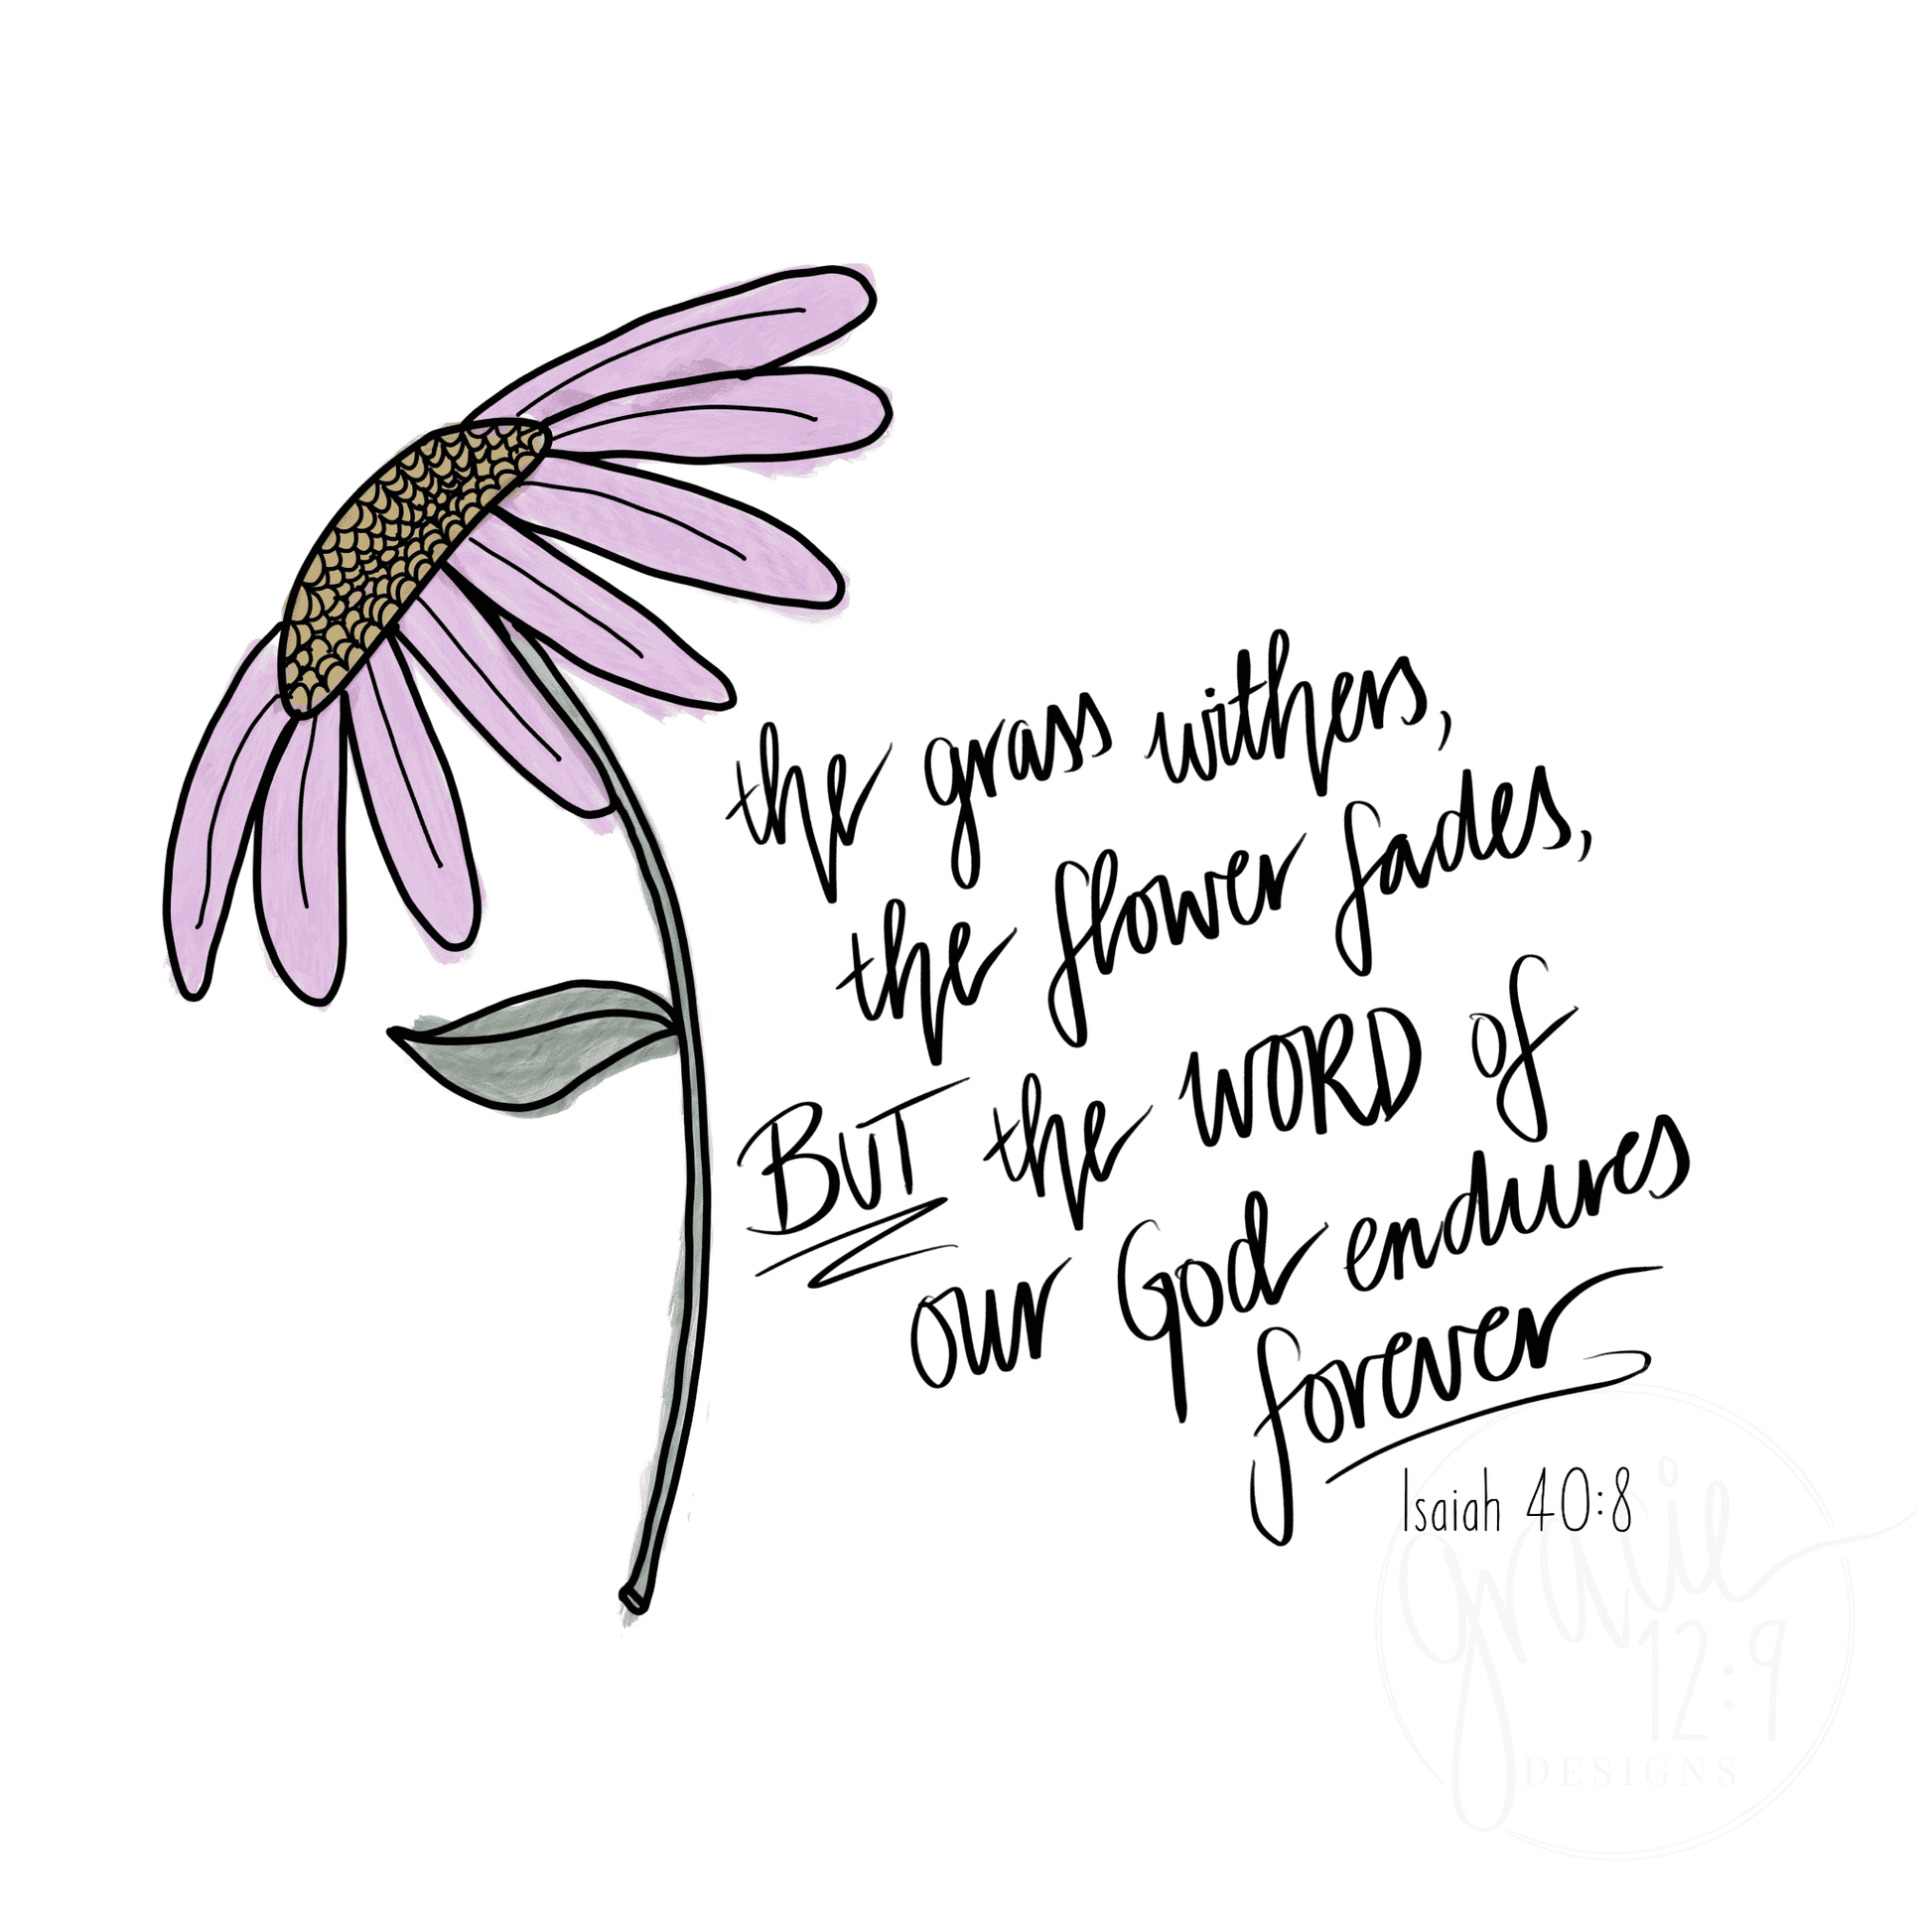 the grass withers,
the flower fades,
BUT the WORD of
our God endures
forever
Isaiah 40:8
gracie
12:9
DESIGNS